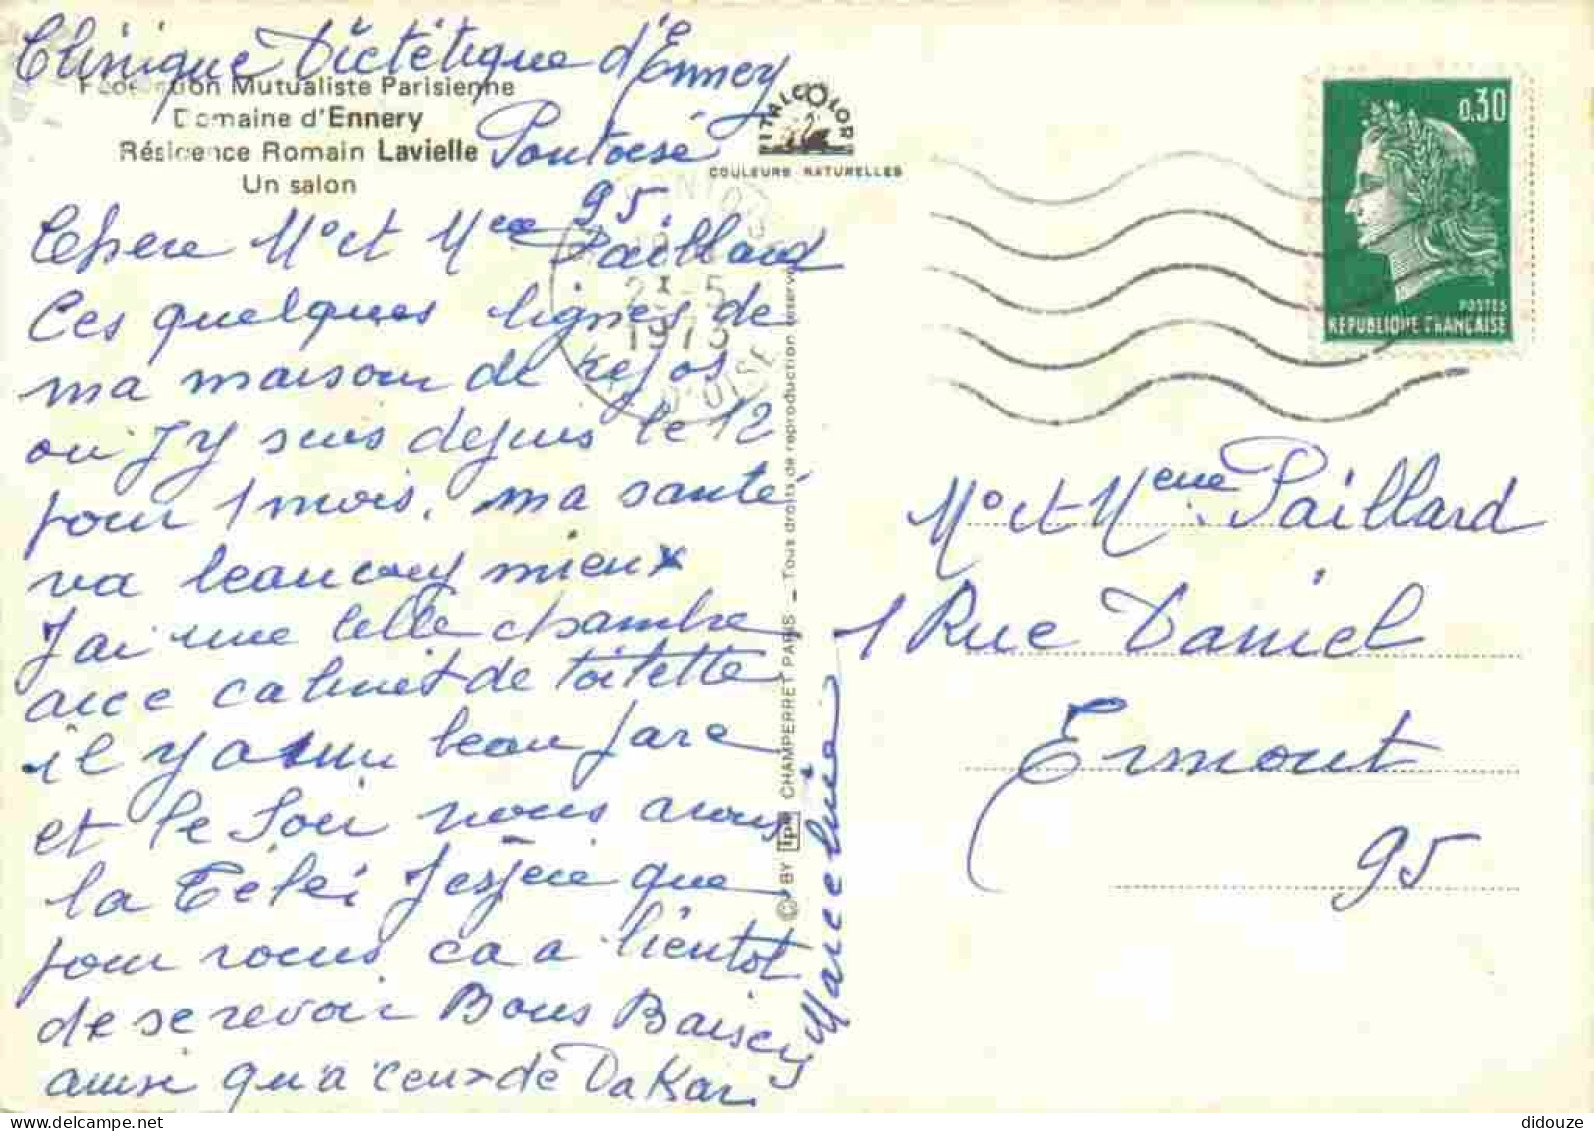 Clinique Dietétique d'Ennery
Fédération Mutualiste Parisienne
Domaine d'Ennery
Résidence Romain Lavielle
Un salon
Pontoise
95.
ITALCOLOR
COULEURS NATURELLES
0,30
POSTES
REPUBLIQUE FRANCAISE
23-5
1973
D'OISE
Chere Mr et Mme Paillard
Ces quelques lignes de
ma maison de repos
ou J'y suis depuis le 12
pour 1 mois. ma santé
va beaucoup mieux
J'ai une belle chambre
avec cabinet de toilette
il y a un beau parc
et le soir nous avons
la Télei J'espere que
pour vous ca a bientot
de se revoir Bons Baisers
ainsi qu'a ceux de Dakar
Marcelline
© BY IPP CHAMPERRET PARIS _ Tous droits de reproduction réservés
Mr et Mme Paillard
1 Rue Daniel
Ermont
95
didouze